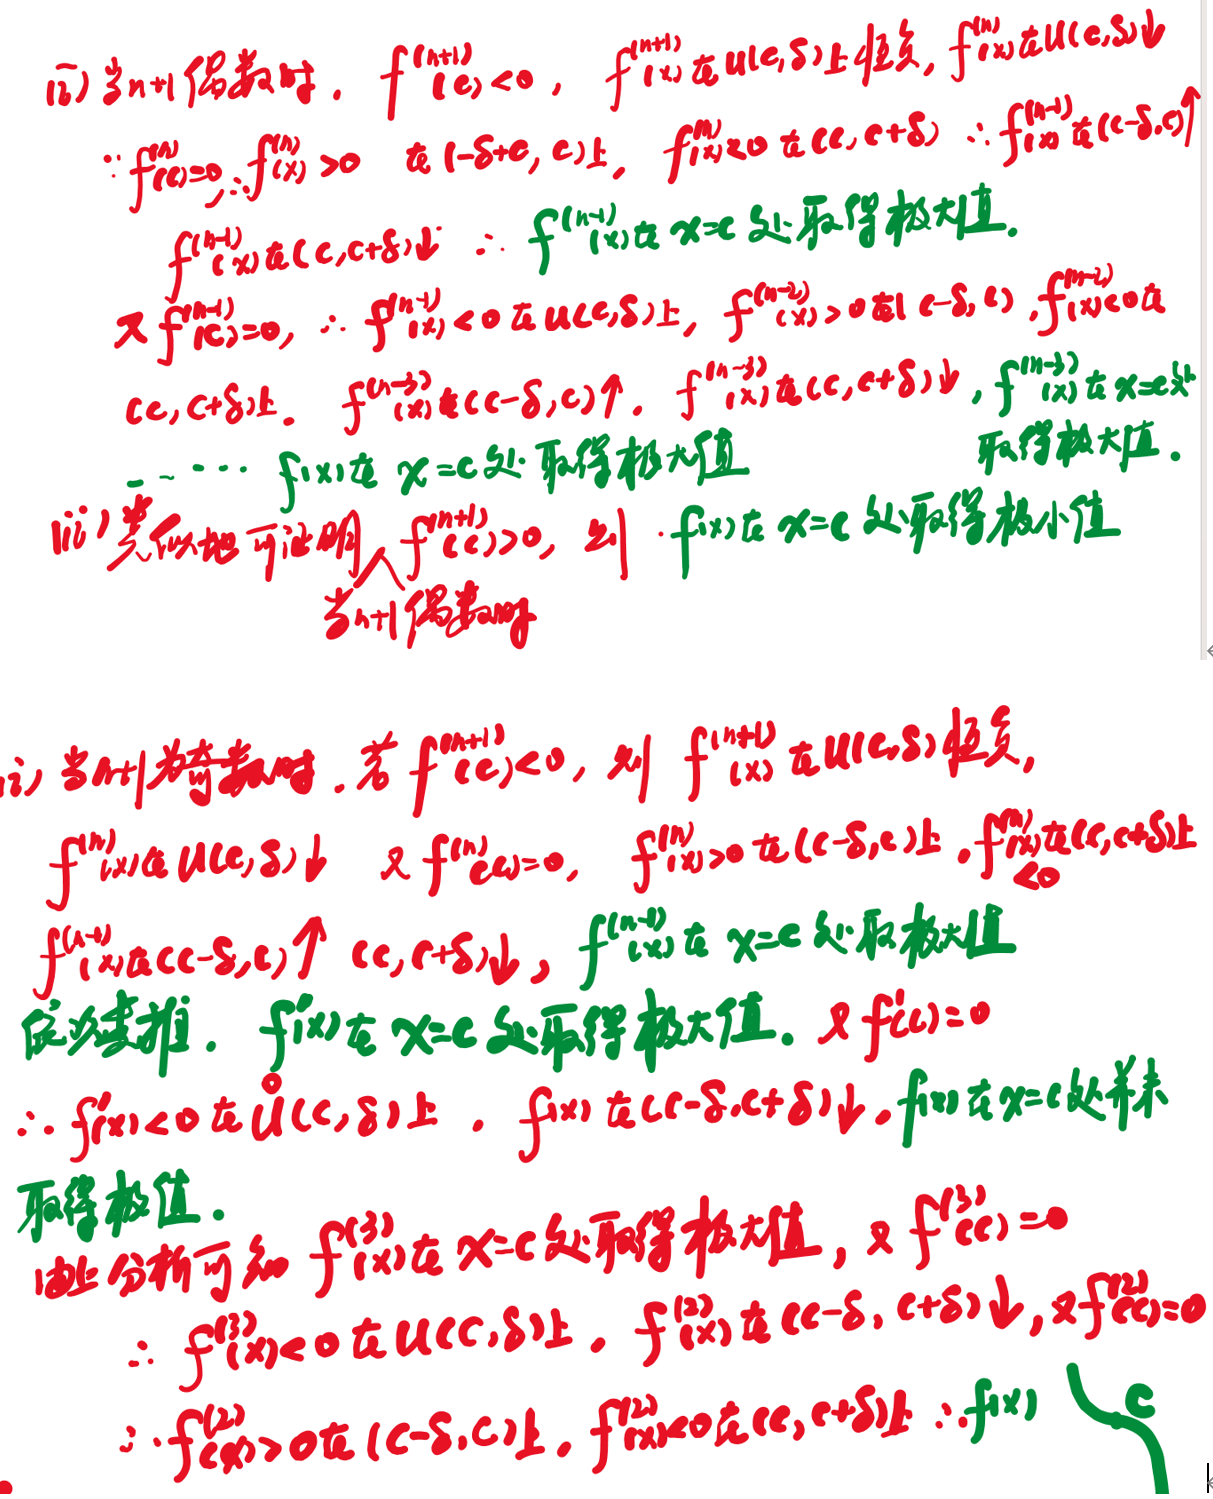 ii) 当n+1偶数时. f^(n+1)(c)<0, f^(n+1)(x)在U(c,δ)上恒负, f^(n)(x)在U(c,δ)↓
∵ f^(n)(c)=0, ∴ f^(n)(x)>0 在(-δ+c, c)上, f^(n)(x)<0在(c, c+δ) ∴ f^(n-1)(x)在(c-δ,c)↑
f^(n-1)(x)在(c, c+δ)↓ ∴ f^(n-1)(x)在x=c处取得极大值.
又f^(n-1)(c)=0, ∴ f^(n-1)(x)<0在U(c,δ)上, f^(n-2)(x)>0在(c-δ,c), f^(n-2)(x)<0在
(c, c+δ)上. f^(n-3)(x)在(c-δ,c)↑. f^(n-3)(x)在(c,c+δ)↓, f^(n-3)(x)在x=c处
取得极大值.
…… f(x)在x=c处取得极大值
iii) 类似地可证明 f^(n+1)(c)>0, 则 f(x)在x=c处取得极小值
当n+1偶数时
ii) 当n+1为奇数时. 若f^(n+1)(c)<0, 则 f^(n+1)(x)在U(c,δ)恒负,
f^(n)(x)在U(c,δ)↓ 又f^(n)(c)=0, f^(n)(x)>0在(c-δ,c)上, f^(n)(x)在(c,c+δ)上
<0
f^(n-1)(x)在(c-δ,c)↑ (c,c+δ)↓, f^(n-1)(x)在x=c处取极大值
依次类推. f'(x)在x=c处取得极大值. 又f'(c)=0
∴ f'(x)<0在Ů(c,δ)上. f(x)在(c-δ,c+δ)↓. f(x)在x=c处并未
取得极值.
由上分析可知 f^(3)(x)在x=c处取得极大值, 又f^(3)(c)=0
∴ f^(3)(x)<0在U(c,δ)上. f^(2)(x)在(c-δ, c+δ)↓, 又f^(2)(c)=0
∴ f^(2)(x)>0在(c-δ,c)上. f^(2)(x)<0在(c,c+δ)上 ∴ f(x)
c